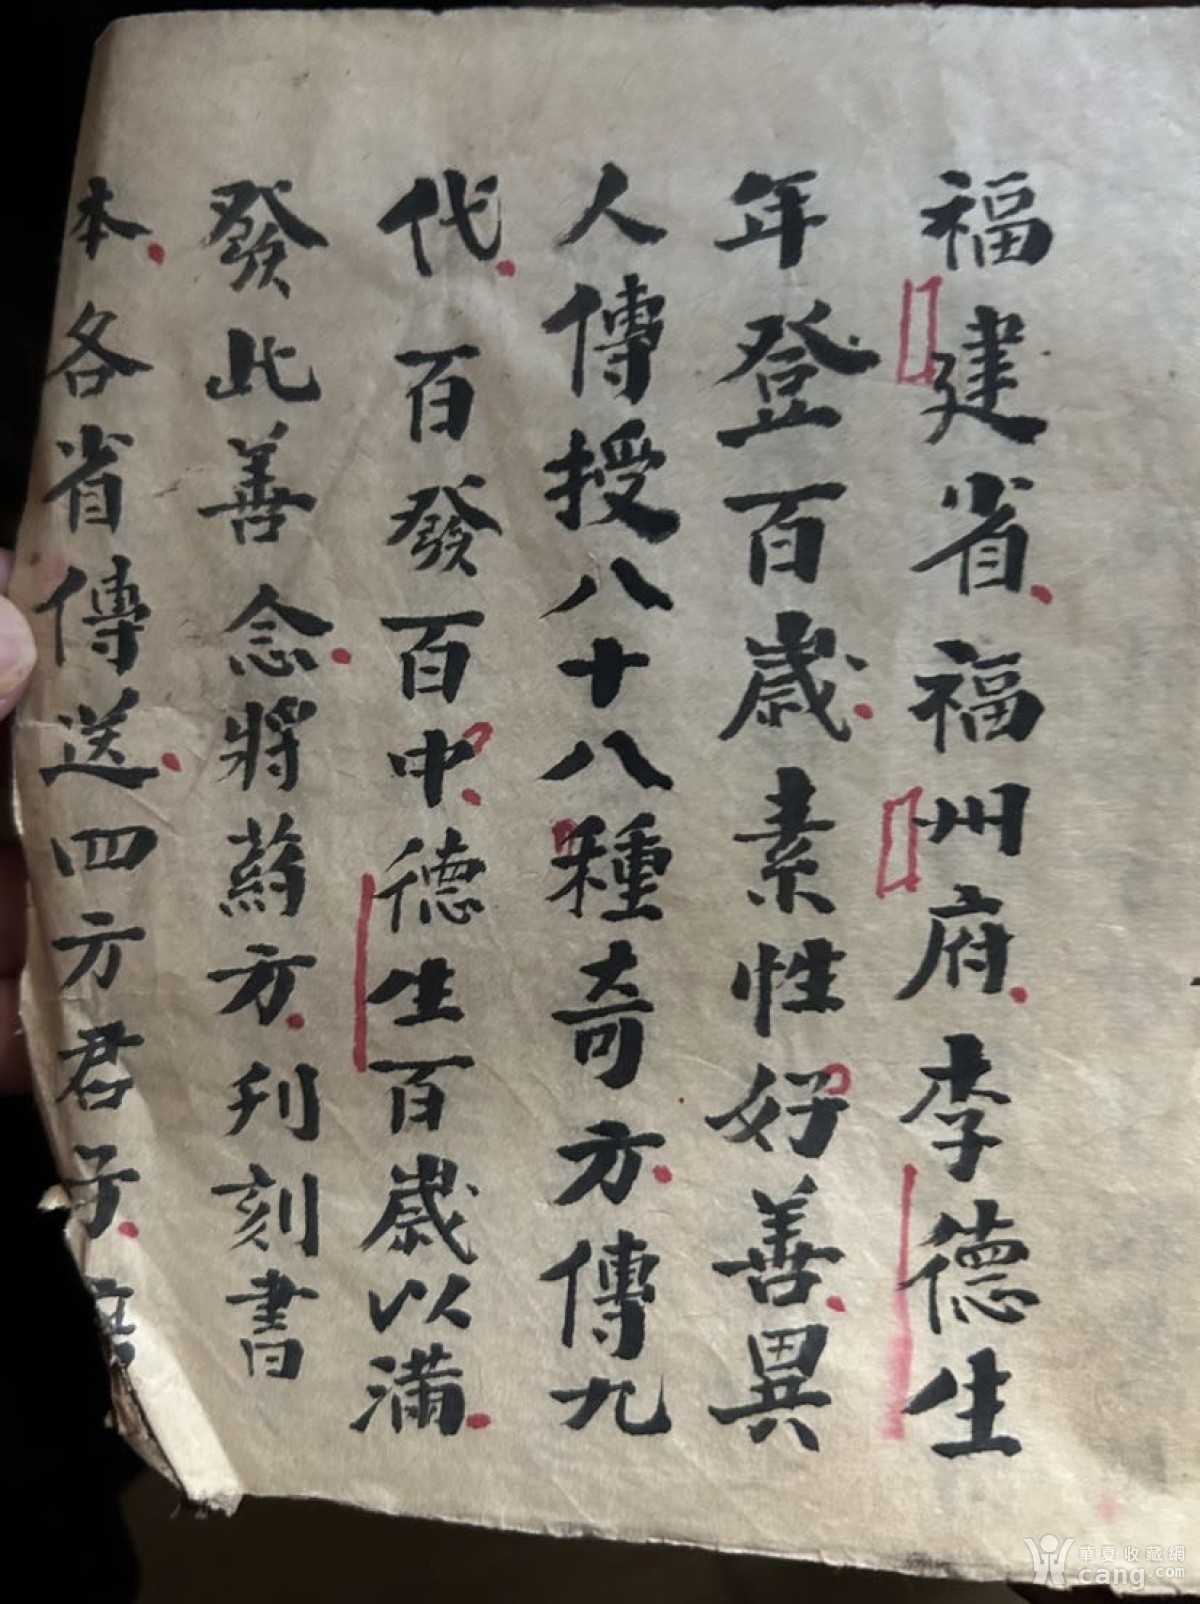 福建省福州府李德生
年登百歲素性好善異
人傳授八十八種奇方傳九
代百發百中德生百歲以满
發此善念將葯方刋刻書
本各省傳送四方君子
華夏收藏網
cang.com